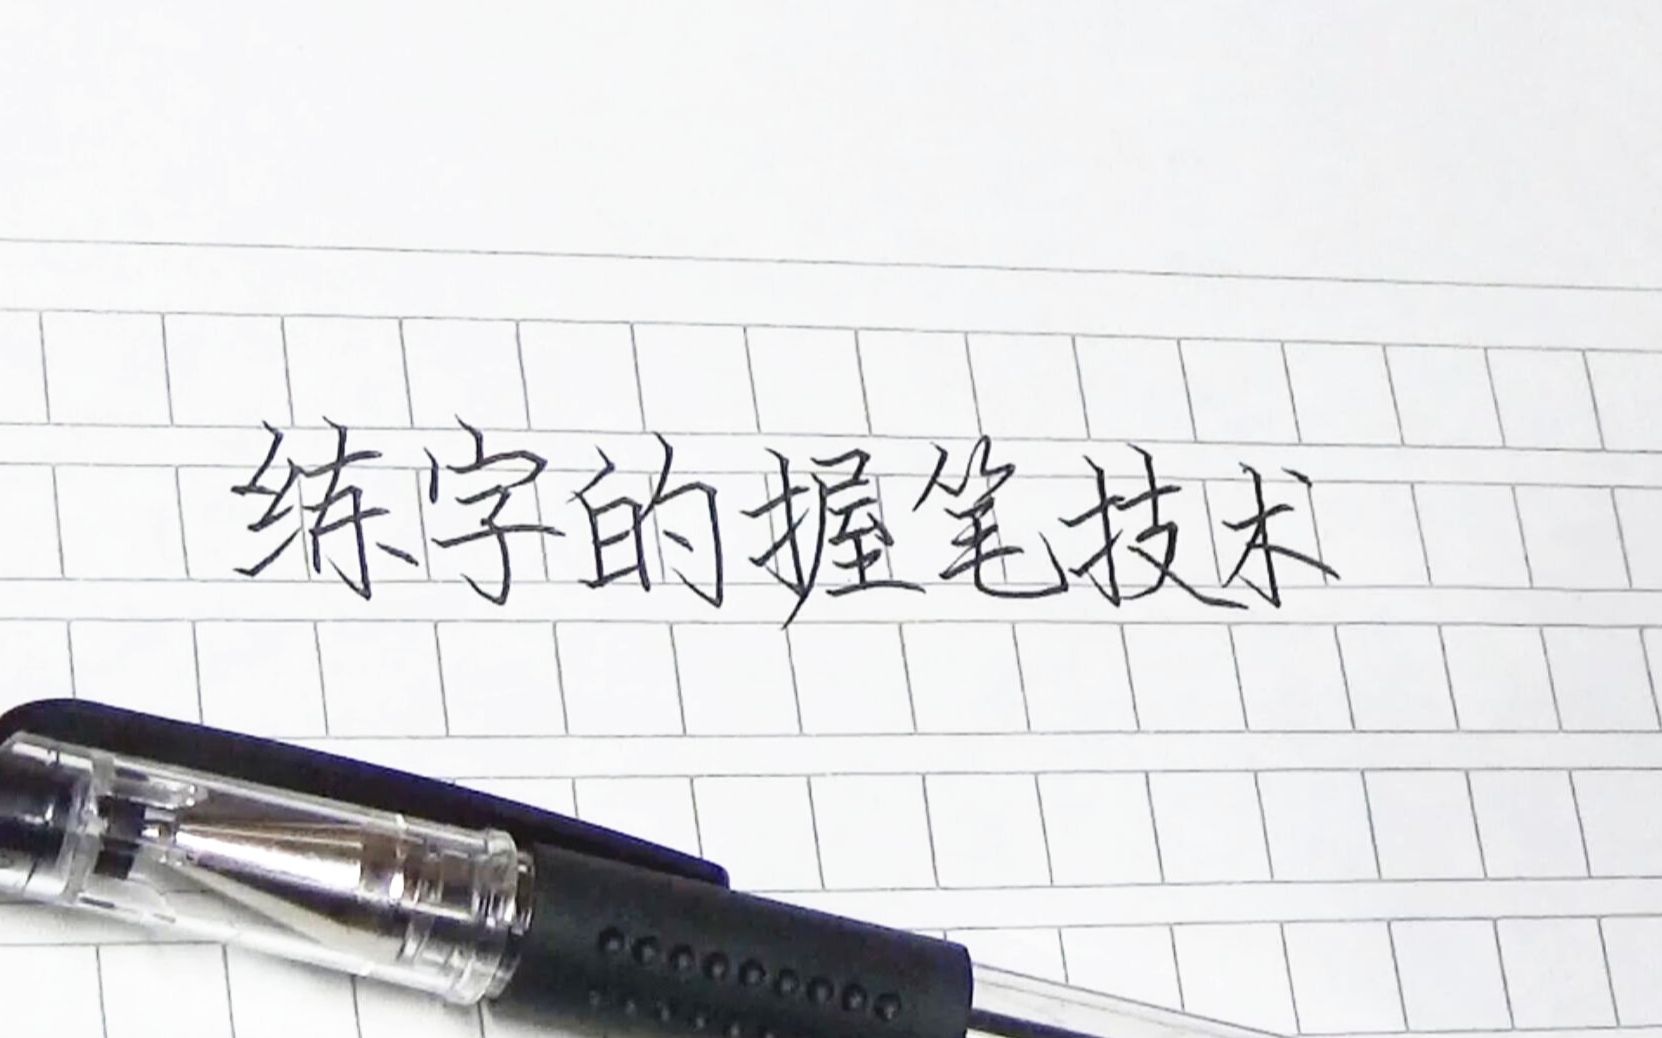 练字的握笔技术